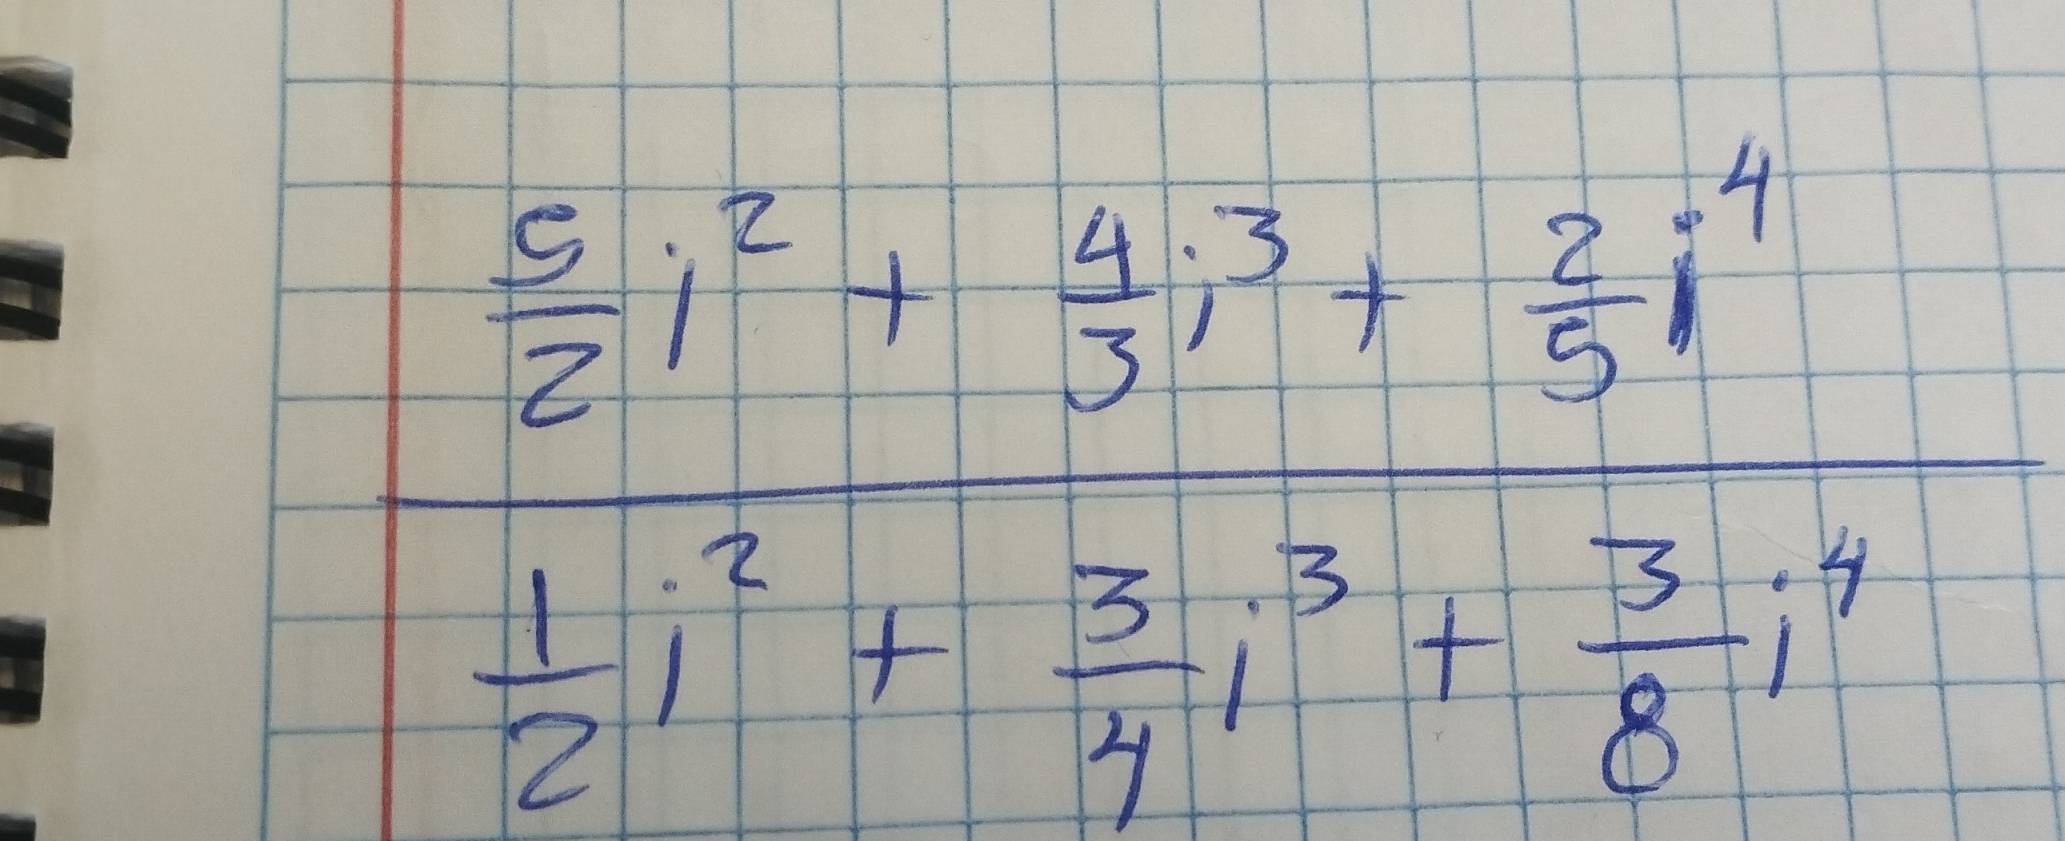 5/2 i² + 4/3 i³ + 2/5 i⁴
1/2 i² + 3/4 i³ + 3/8 i⁴